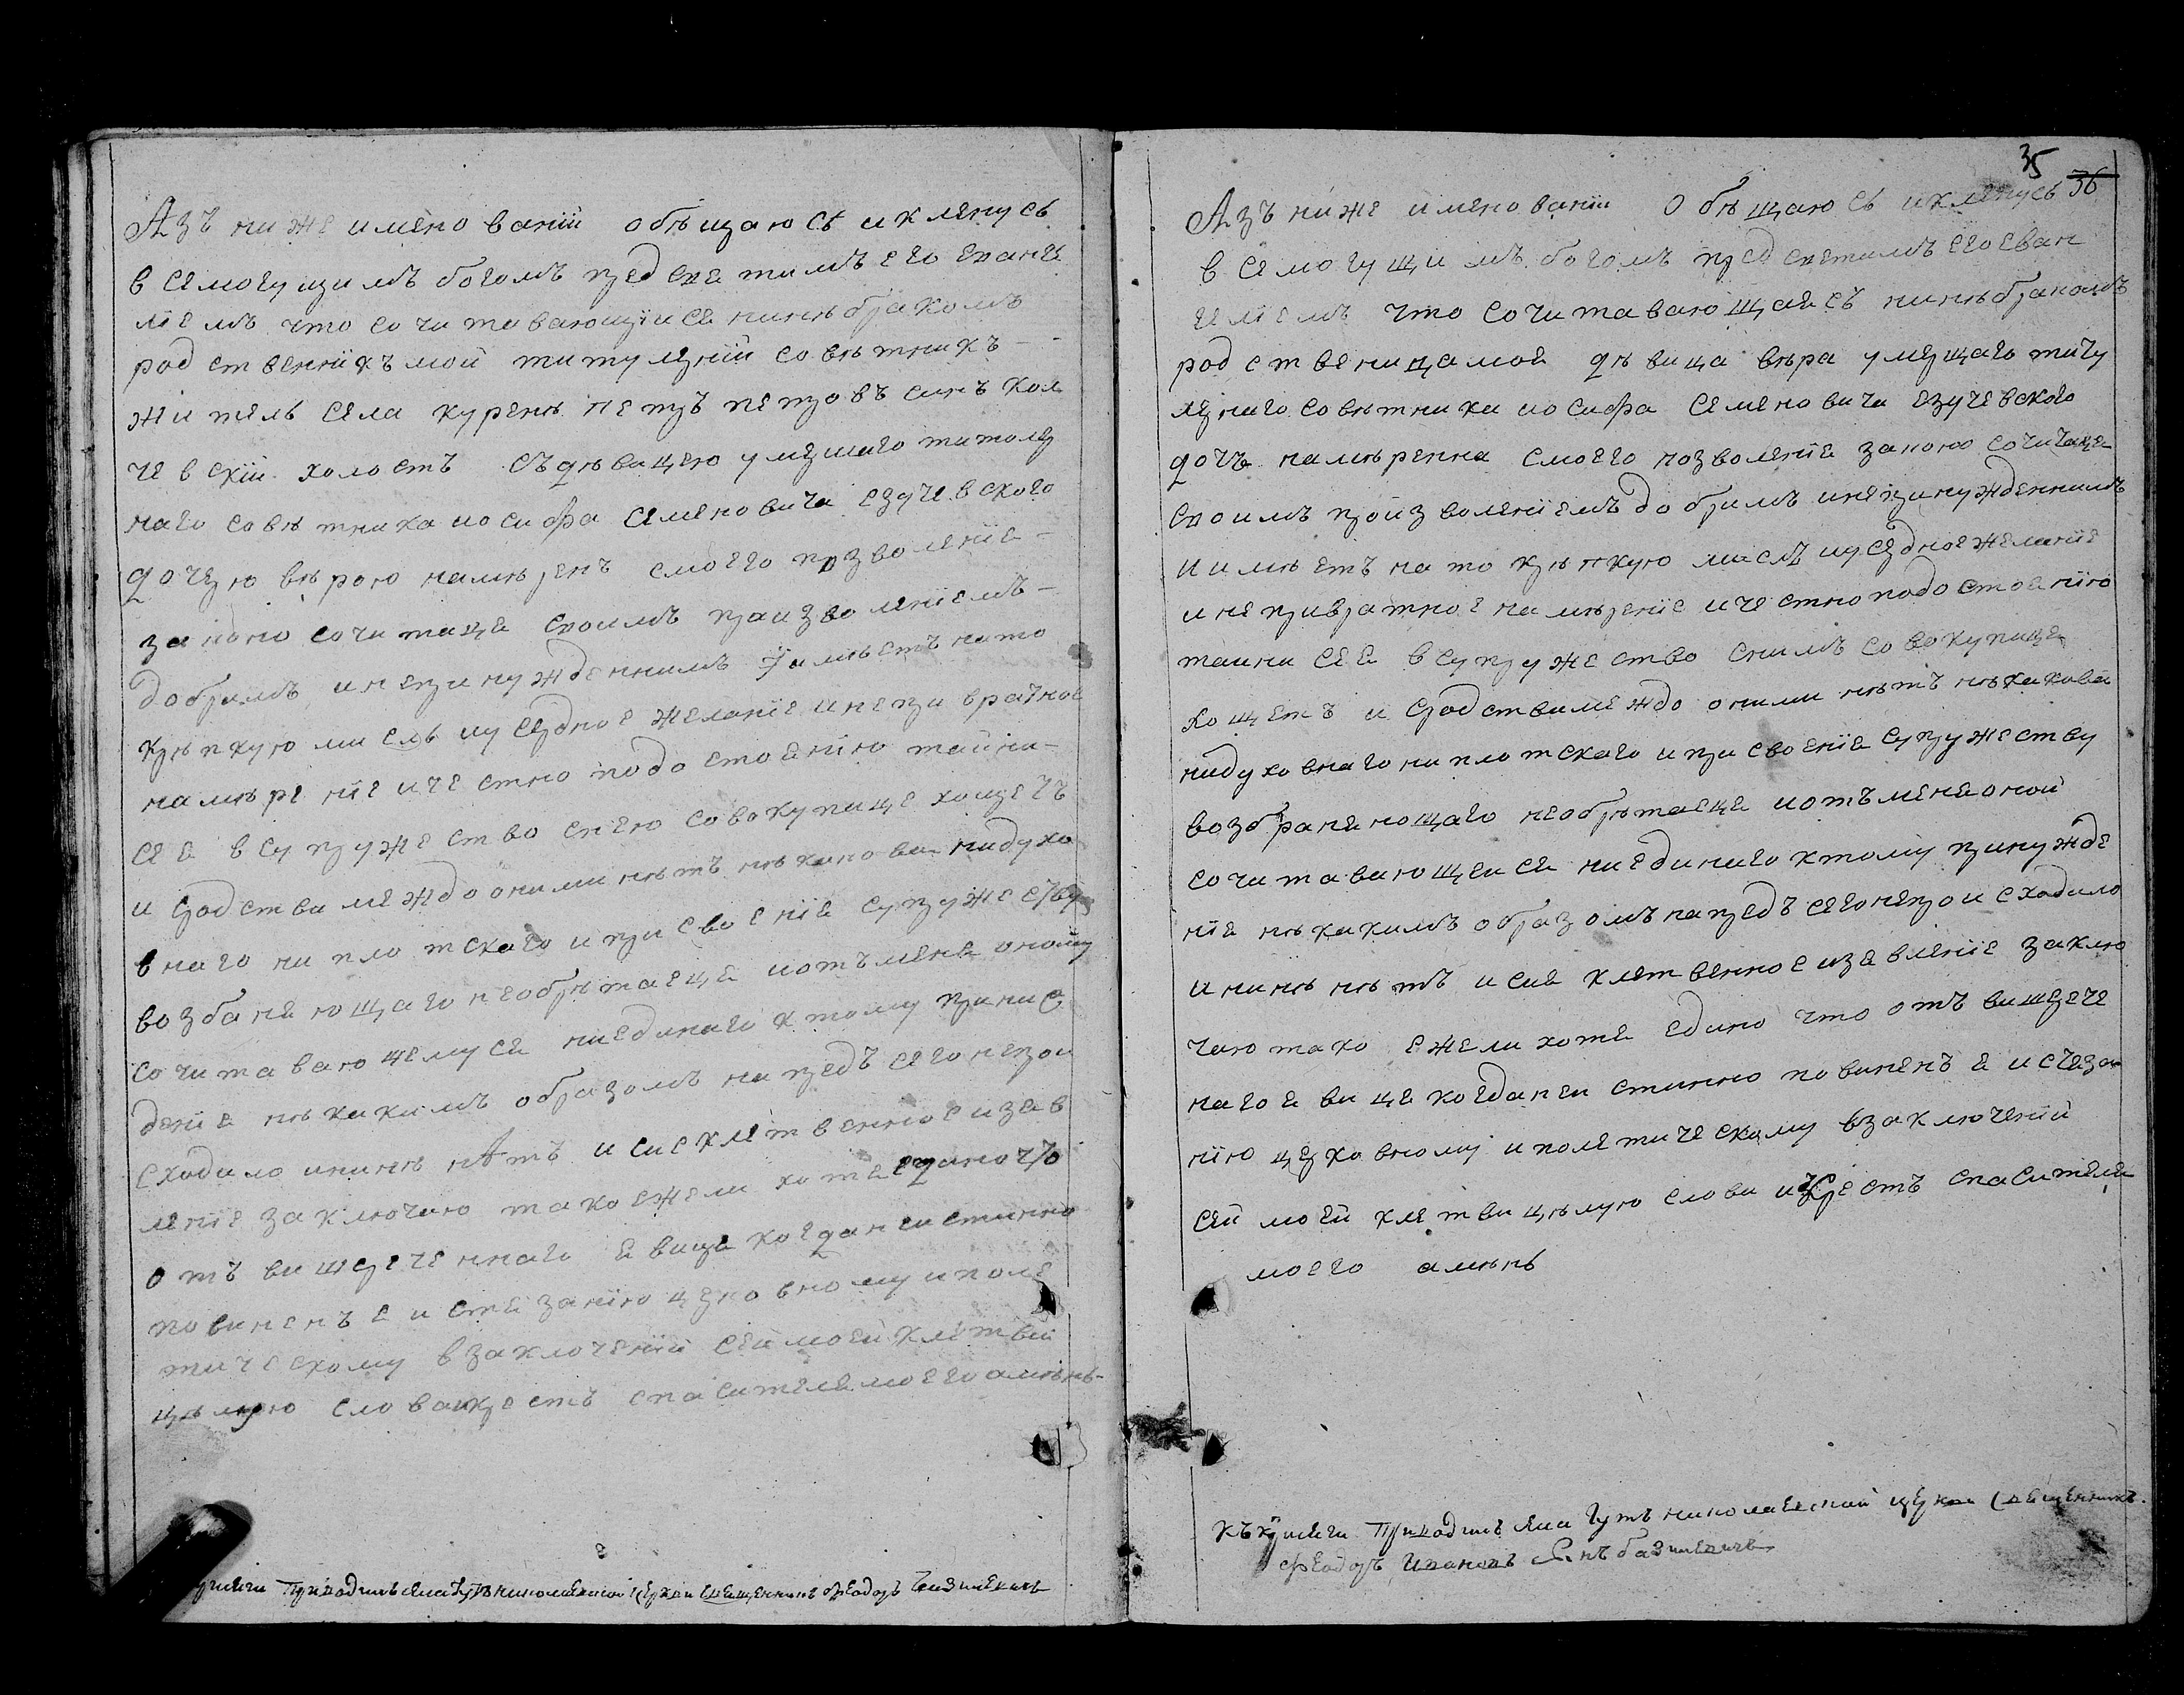 Азъ ниже именованій обѣщаюсь и кленусь
всемогущимъ богомъ пред светимъ его еванге
ліемъ что сочитавающіися нинѣ бракомъ
родственнікъ мой титулярній совѣтникъ
житель села куренѣ петръ петровъ синъ кол
чевскій холостъ съ дѣвицею умершаго титоляр
наго совѣтника иосифа семеновича езучевского
дочерю вѣрою намѣренъ с моего позволеніе
законно сочитаце своимъ праизволеніемъ
добримъ и непринужденнимъ и имѣетъ на то
крѣпкую мисль иусердное желаніе и непривратное
намѣреніе и честно по достоенію тайни
сее в супружество с нею совокупице хощетъ
и сродства междо оними нѣтъ нѣкакова ни духо
внаго ни плотскаго и присвоеніе супружеству
возбаненющаго необрѣтаеце и отъ мене оному
сочитавающемусе ни единаго к тому принуж
деніе нѣкакимъ образомъ напредъ сего непрои
сходило и нинѣ нѣтъ и сие клетвенное изев
леніе заключаю тако ежели хоте едино что
отъ вишереченнаго евице когда неистинно
повиненъ е истезанію церковному и поле
тическому в заключеніи сей моей клетви
цѣлую слова и крестъ спасителя моего аминь
Приводилъ николаевской церкви священникъ феодоръ базилевичъ
35 36
Азъ ниже именованіи обѣщаюсь и кленусь
всемогущимъ богомъ пред светимъ его еван
гелиемъ что сочитавающаясъ нинѣ бракомъ
родственица моя дѣвица вѣра умерщаго титу
лярнаго совѣтника иосифа семеновича езучевского
дочъ намѣренна с моего позволеніе законно сочитаце
своимъ произволеніемъ добримъ и непринужденнимъ
и имѣетъ на то крѣпкую мисль иусердное желаніе
и непривратное намѣреніе и честно по достоенію
таини сее в супружество с нимъ совокупице
хощетъ и сродства междо оними нѣтъ нѣкакова
ни духовнаго ни плотскаго и присвоеніе супружеству
возбраненющаго необрѣтаеце и отъ мене оной
сочитавающеися ни единаго к тому принужде
ніе нѣкакимъ образомъ напредъ сего непроисходило
и нинѣ нѣтъ и сие клетвенное изевленіе заклю
чаю тако ежели хоте едино что отъ вишерече
наго е вице когда неистинно повиненъ е истеза
нію церковному и полетическому в заключеній
сей моей клетви цѣлую слова и крестъ спасителе
моего аминь
Къ присяги Приводилъ николаевской церкви священникъ
феодоръ Ивановъ Синъ базилевичъ